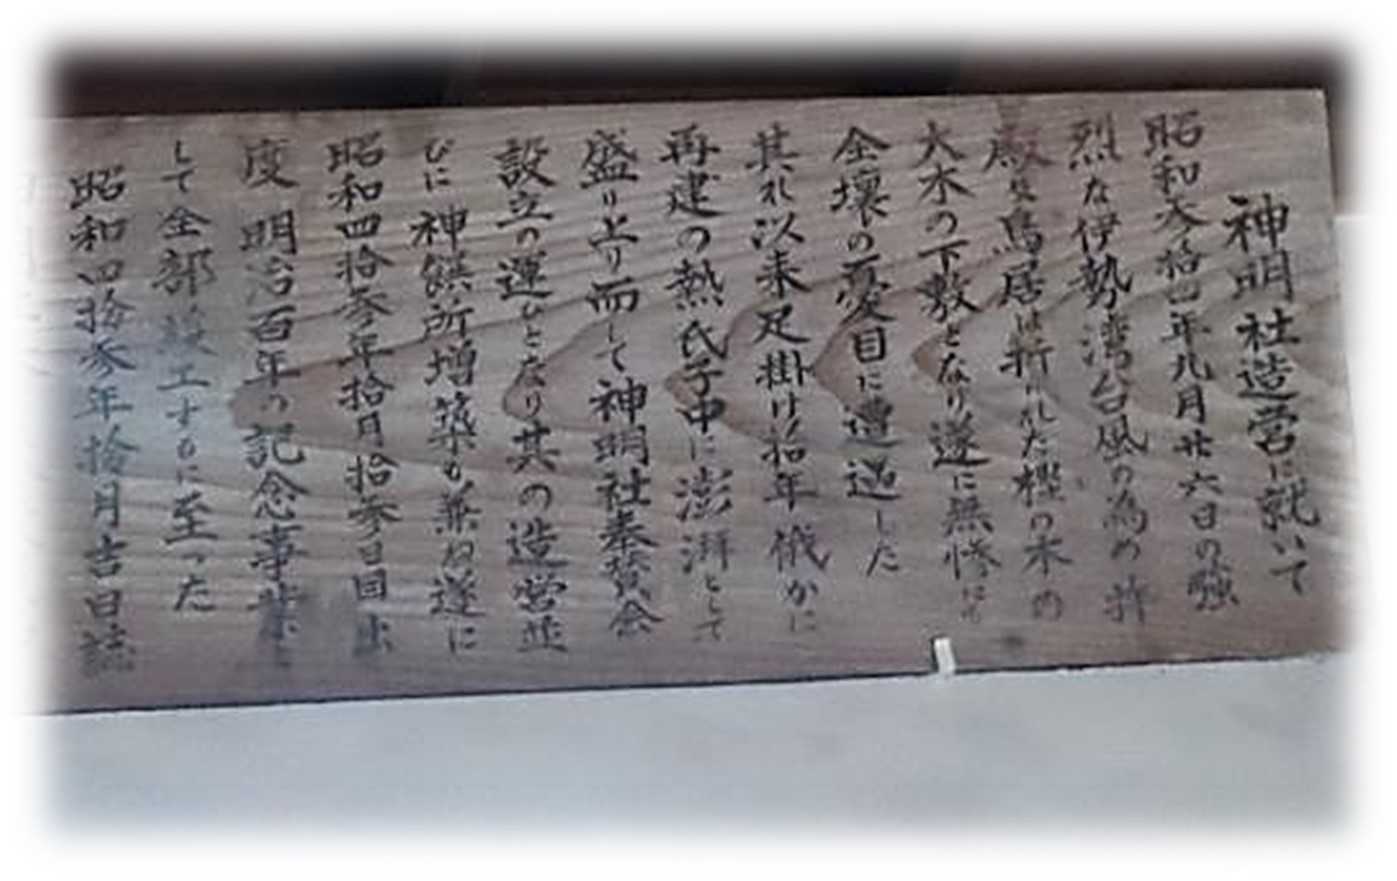 神明社造営に就いて
昭和参拾四年九月廿六日の強
烈な伊勢湾台風の為め荘
厳な鳥居は折れた樫の木の
大木の下敷となり遂に無惨にも
全壊の憂目に遭遇した
其れ以来足掛け拾年俄かに
再建の熱氏子中に澎湃として
盛り上り而して神明社奉賛会
設立の運びとなり其の造営並
びに神饌所増築も兼ね遂に
昭和四拾参年拾月拾参日目出
度明治百年の記念事業と
して全部竣工するに至った
昭和四拾参年拾月吉日誌